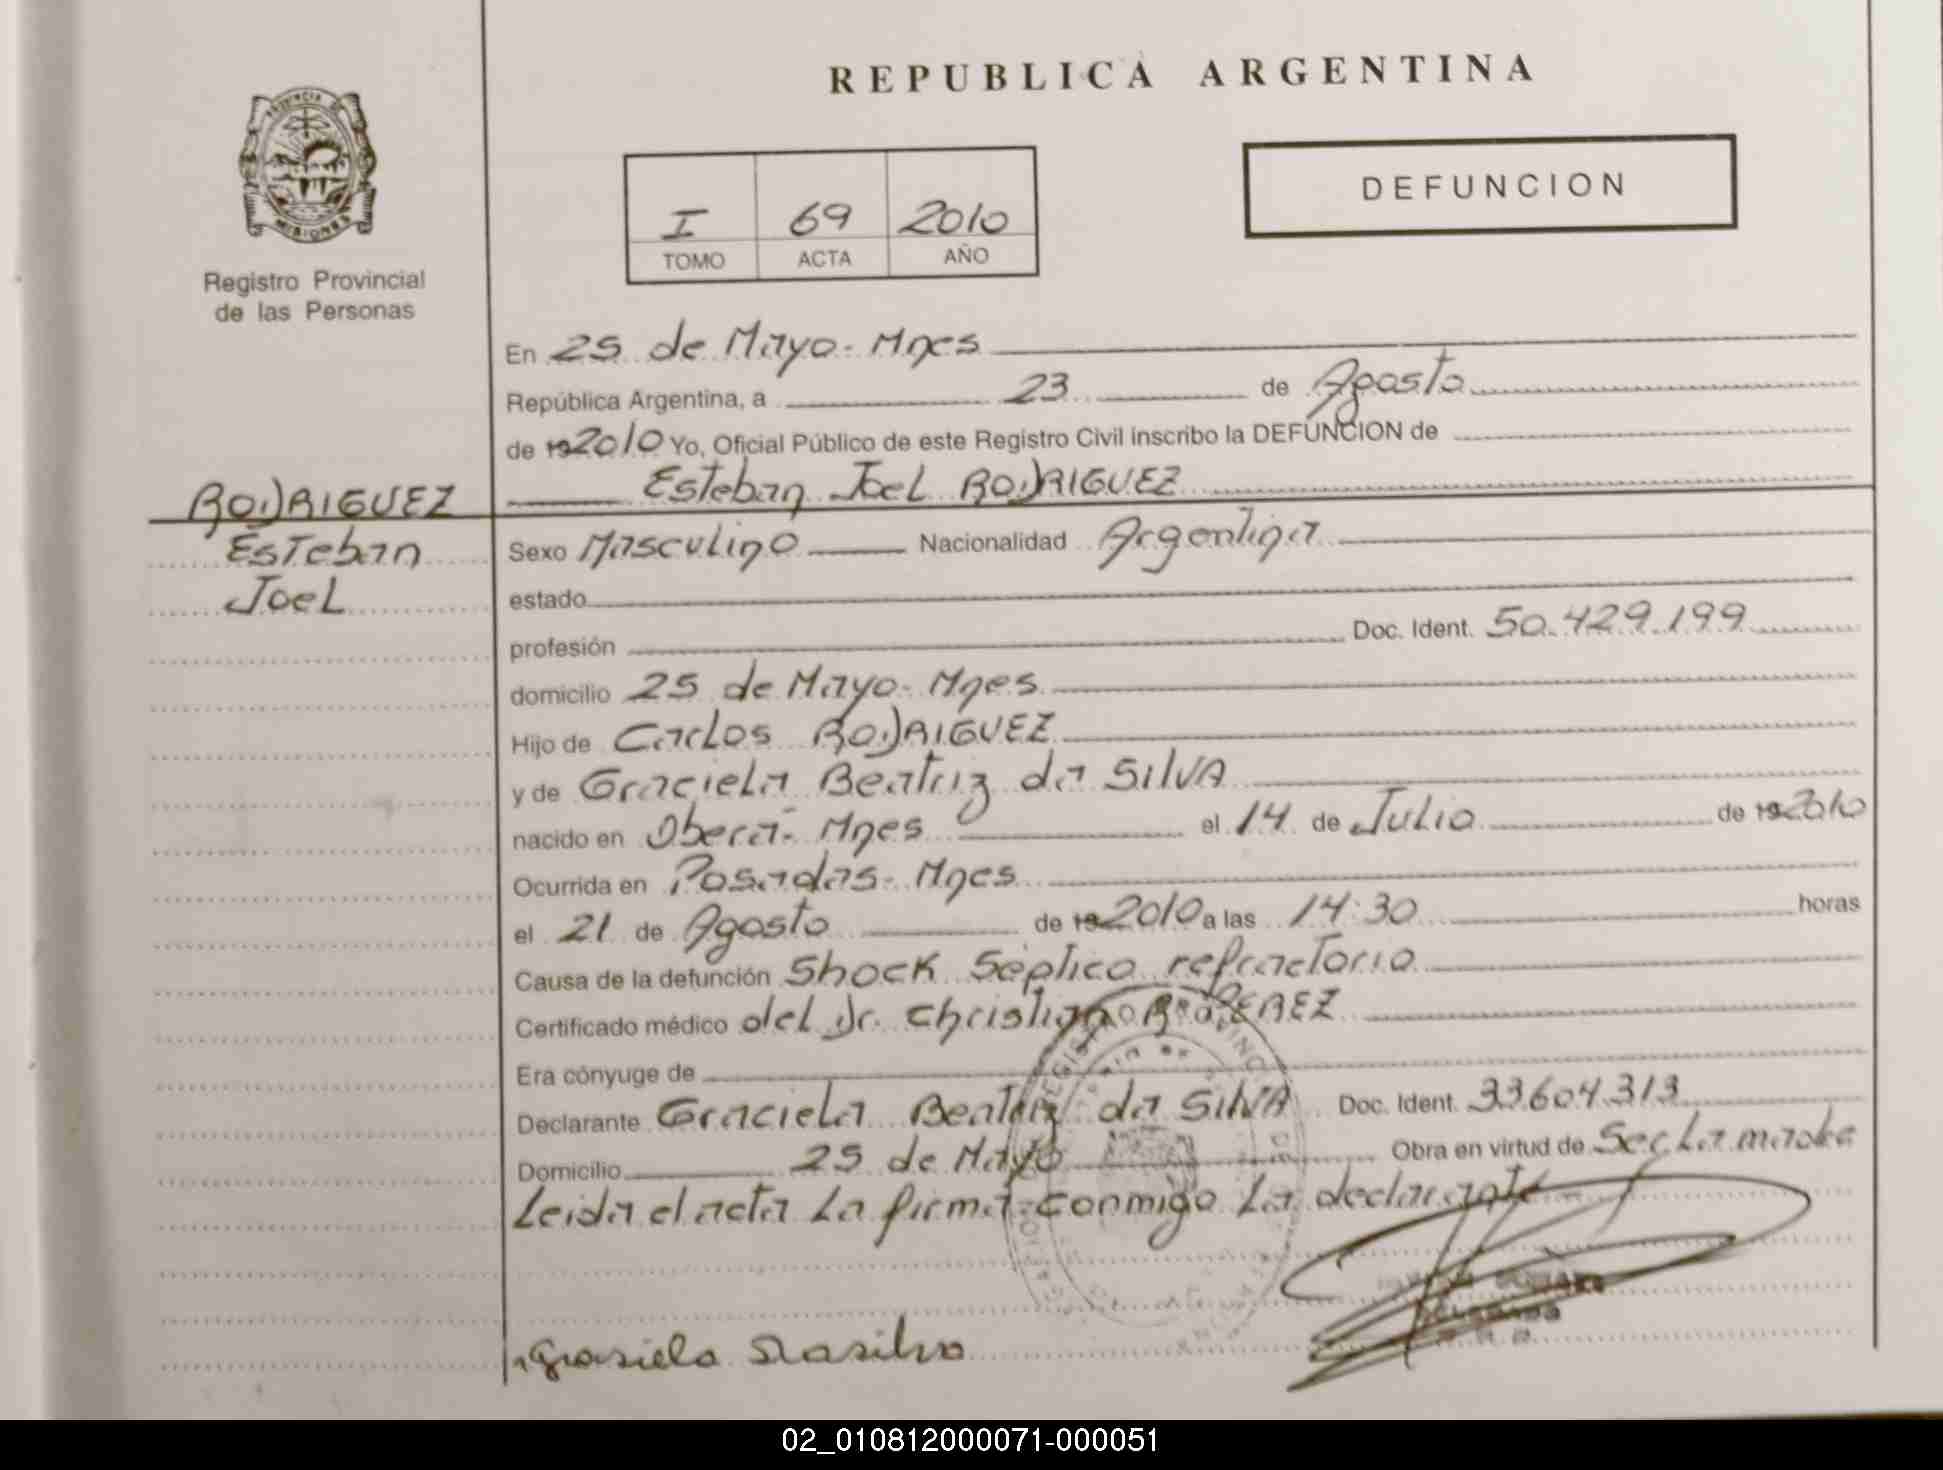 REPUBLICA ARGENTINA
PROVINCIA DE
MISIONES
Registro Provincial
de las Personas
DEFUNCION
I 69 2010
TOMO ACTA AÑO
En 25 de Mayo - Mnes
República Argentina, a 23 de Agosto
de 19 2010 Yo, Oficial Público de este Registro Civil inscribo la DEFUNCION de
Esteban Joel RODRIGUEZ
RODRIGUEZ
Esteban
Joel
Sexo Masculino Nacionalidad Argentina
estado
profesión Doc. Ident. 50.429.199
domicilio 25 de Mayo - Mnes
Hijo de Carlos RODRIGUEZ
y de Graciela Beatriz da SilVA
nacido en Oberá - Mnes el 14 de Julio de 19 2010
Ocurrida en Posadas - Mnes
el 21 de Agosto de 19 2010 a las 14:30 horas
Causa de la defunción Shock Séptico refractorio
Certificado médico del Dr. Christian PEREZ
Era cónyuge de
Declarante Graciela Beatriz da SilVA Doc. Ident. 33.604.313
Domicilio 25 de Mayo Obra en virtud de Ser La madre
Leida el acta La firma conmigo La declarante
Grasiela Dasilva
02_010812000071-000051